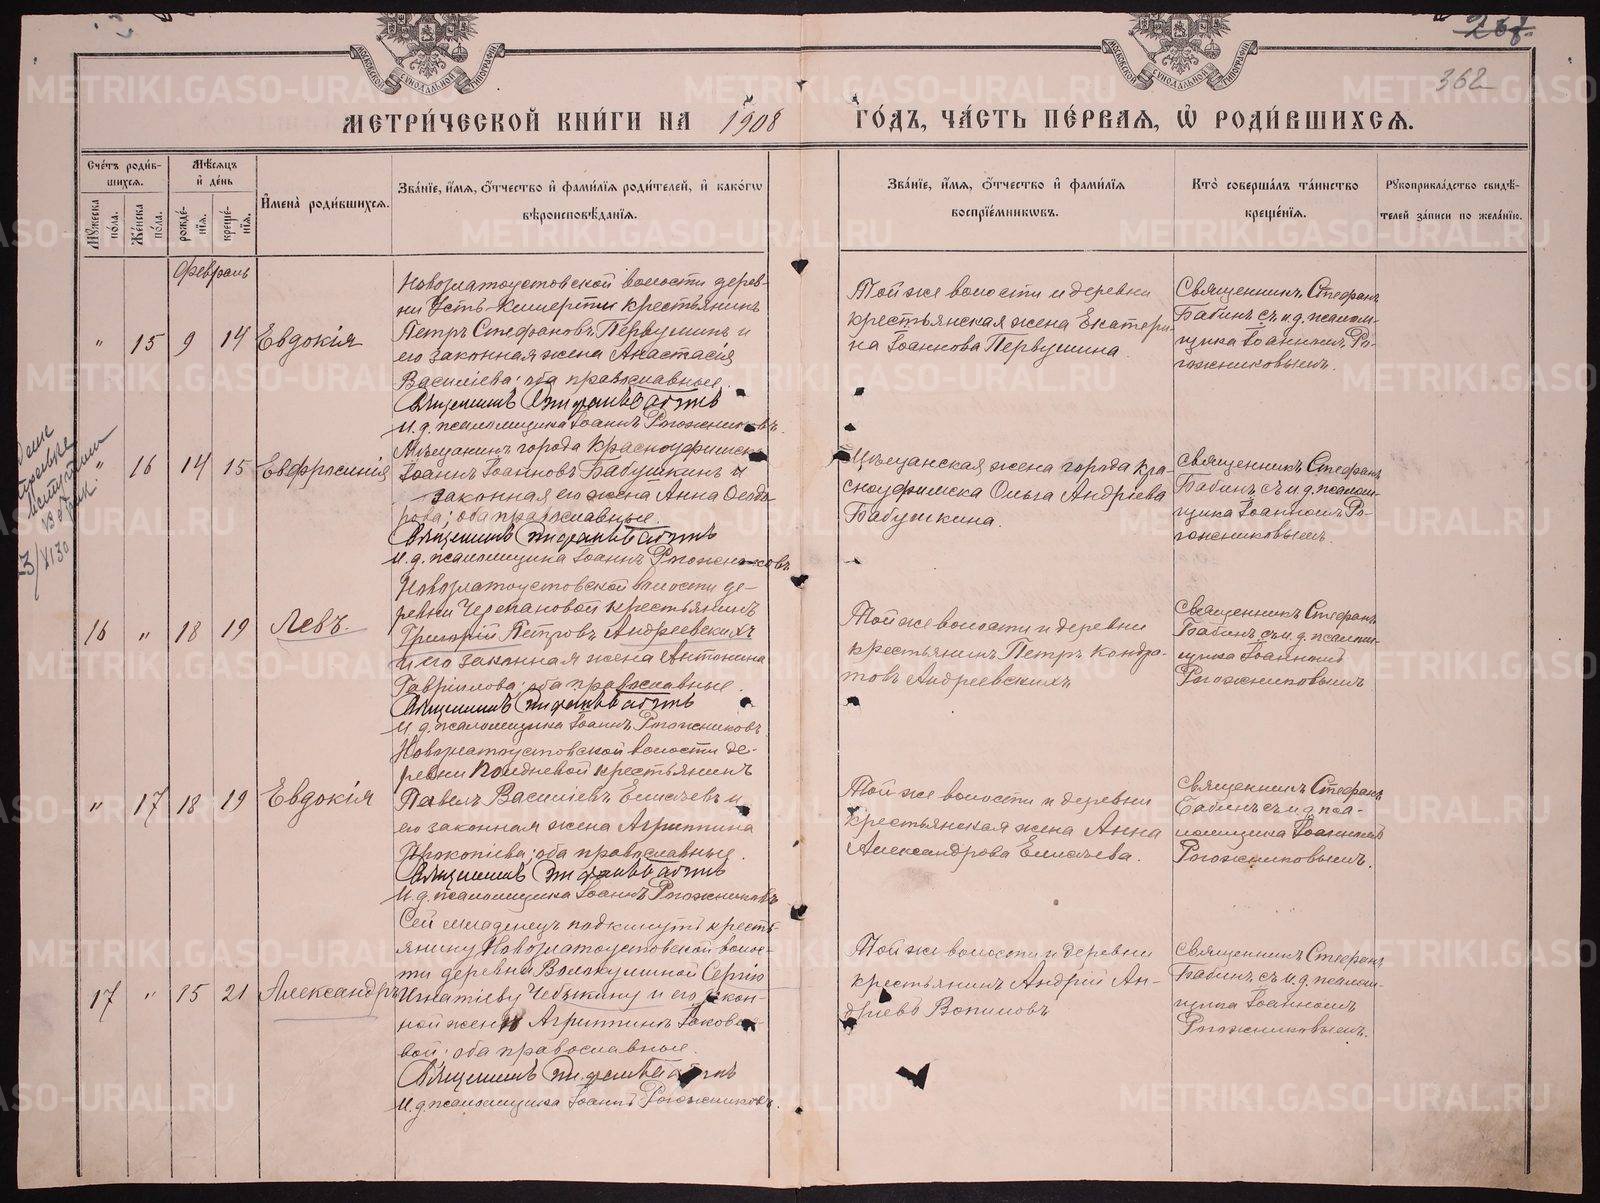 268
362
МОСКОВСКОЙ СѴНОДАЛЬНОЙ ТИПОГРАФІИ
МОСКОВСКОЙ СѴНОДАЛЬНОЙ ТИПОГРАФІИ
МЕТРИ́ЧЕСКОЙ КНИ́ГИ НА 1908 ГО́ДЪ, ЧА́СТЬ ПЕ́РВАЯ, Ѡ҆ РОДИ́ВШИХСЯ.
Сче́тъ роди́в-
шихся.
Мꙋ́жеска по́ла.
Же́нска по́ла.
Мѣ́сяцъ
и҆ де́нь
рожде́-
нїя.
креще́-
нїя.
И҆мена̀ роди́вшихся.
Зва́нїе, и҆́мя, ѻ҆́тчество и҆ фами́лїя роди́телей, и҆ како́гѡ
вѣроисповѣ́данїя.
Зва́нїе, и҆́мя, ѻ҆́тчество и҆ фами́лїя
воспрїе́мникѡвъ.
Кто̀ соверша́лъ та́инство
креще́нїя.
Рꙋкоприкла́дство свидѣ́-
телей за́писи по жела́нїю.
Февраль
" 15 9 14 Евдокія
Новозлатоустовской волости дерев-
ни Усть-Кишерти крестьянинъ
Петръ Стефановъ Первушинъ и
его законная жена Анастасія
Василіева; оба православные.
Священникъ Стефанъ Бабинъ
И. д. псаломщика Іоаннъ Рогожниковъ.
Той же волости и деревни
крестьянская жена Екатери-
на Іоаннова Первушина.
Священникъ Стефанъ
Бабинъ съ и. д. псалом-
щика Іоанномъ Ро-
гожниковымъ.
" 16 14 15 Евфросинія
Мѣщанинъ города Красноуфимска
Іоаннъ Іоанновъ Бабушкинъ и
законная его жена Анна Ѳеодо-
рова; оба православные.
Священникъ Стефанъ Бабинъ
И. д. псаломщика Іоаннъ Рогожниковъ
Мѣщанская жена города Кра-
сноуфимска Ольга Андріева
Бабушкина.
Священникъ Стефанъ
Бабинъ съ и. д. псалом-
щика Іоанномъ Ро-
гожниковымъ.
16 " 18 19 Левъ.
Новозлатоустовской волости де-
ревни Черепановой крестьянинъ
Григорій Петровъ Андреевскихъ
и его законная жена Антонина
Гавріилова; оба православные.
Священникъ Стефанъ Бабинъ
И. д. псаломщика Іоаннъ Рогожниковъ
Той же волости и деревни
крестьянинъ Петръ Кондра-
товъ Андреевскихъ
Священникъ Стефанъ
Бабинъ съ и. д. псалом-
щика Іоанномъ
Рогожниковымъ
" 17 18 19 Евдокія
Новозлатоустовской волости де-
ревни Полдневой крестьянинъ
Павелъ Василіевъ Елисеевъ и
его законная жена Агриппина
Прокопіева; оба православные.
Священникъ Стефанъ Бабинъ
И. д. псаломщика Іоаннъ Рогожниковъ
Той же волости и деревни
крестьянская жена Анна
Александрова Елисеева.
Священникъ Стефанъ
Бабинъ съ и. д. пса-
ломщика Іоанномъ
Рогожниковымъ.
17 " 15 21 Александръ
Сей младенецъ подкинутъ кресть-
янину Новозлатоустовской волос-
ти деревни Волокушиной Сергію
Игнатіеву Чебыкину и его закон-
ной женѣ Агриппинѣ Іаковле-
вой; оба православные.
Священникъ Стефанъ Бабинъ
И. д. псаломщика Іоаннъ Рогожниковъ.
Той же волости и деревни
крестьянинъ Андрій Ан-
дріевъ Вопиловъ
Священникъ Стефанъ
Бабинъ съ и. д. псалом-
щика Іоанномъ
Рогожниковымъ.
METRIKI.GASO-URAL.RU